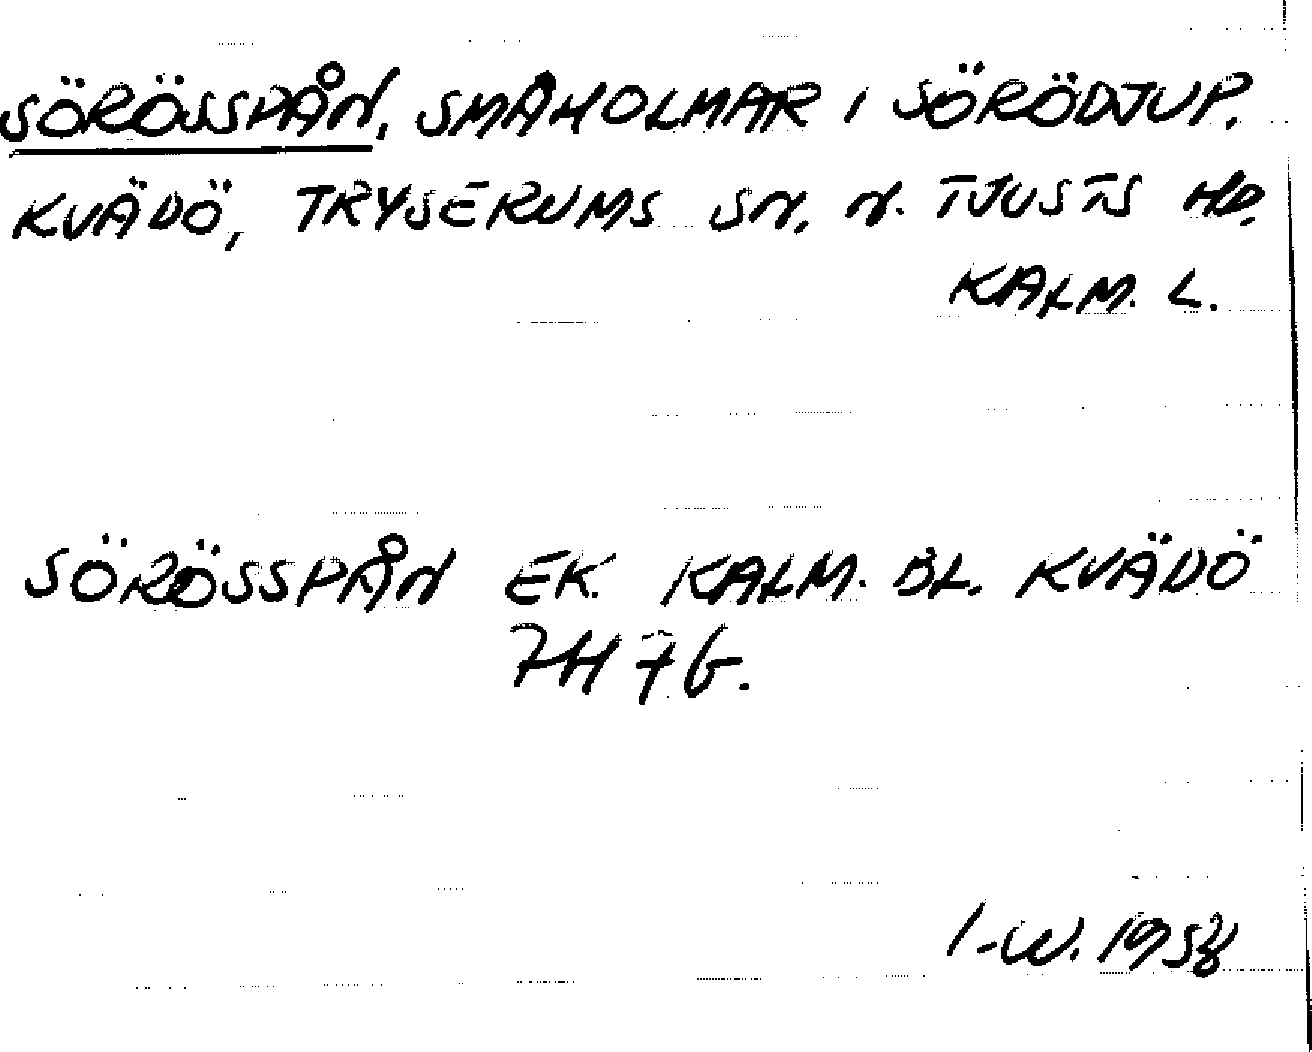 SÖRÖSSPÅN, SMÅHOLMAR I SÖRÖDJUP.
KVÄDÖ, TRYSERUMS SN, N. TJUSTS HD.
KALM. L.
SÖRÖSSPÅN EK. KALM. BL. KVÄDÖ
7H 7G.
I-W. 1958